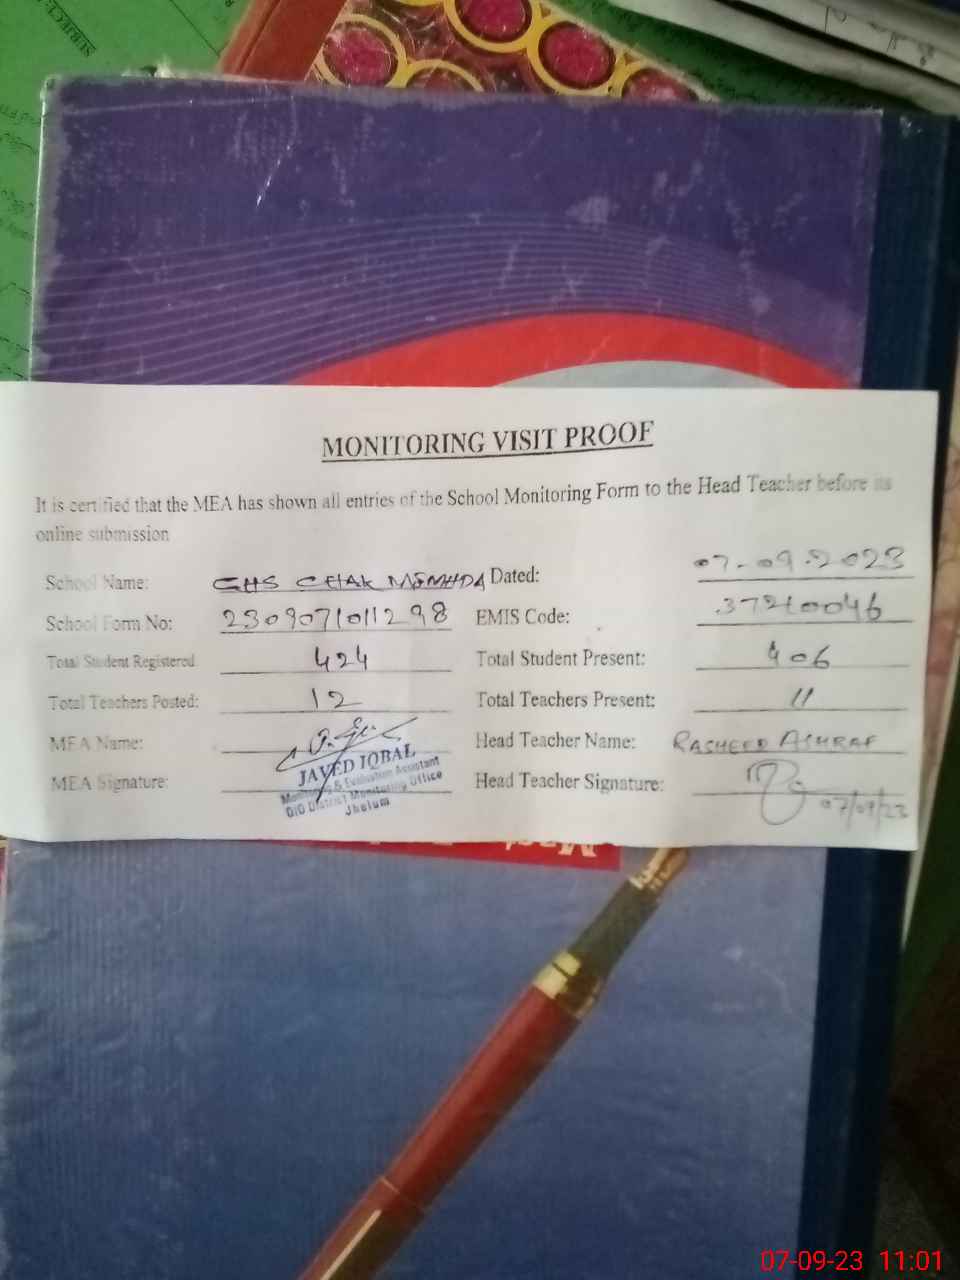 SUBJECT
MONITORING VISIT PROOF
It is certified that the MEA has shown all entries of the School Monitoring Form to the Head Teacher before its
online submission
School Name: GHS CHAK Dated: 07-09-2023
School Form No: 2309071011298 EMIS Code: 37210046
Total Student Registered 424 Total Student Present: 406
Total Teachers Posted: 12 Total Teachers Present: 11
MEA Name: Head Teacher Name: RASHEED ASHRAF
MEA Signature: Head Teacher Signature: 07/09/23
JAVED IQBAL
Monitoring & Evaluation Assistant
O/O District Monitoring Office
Jhelum
07-09-23 11:01